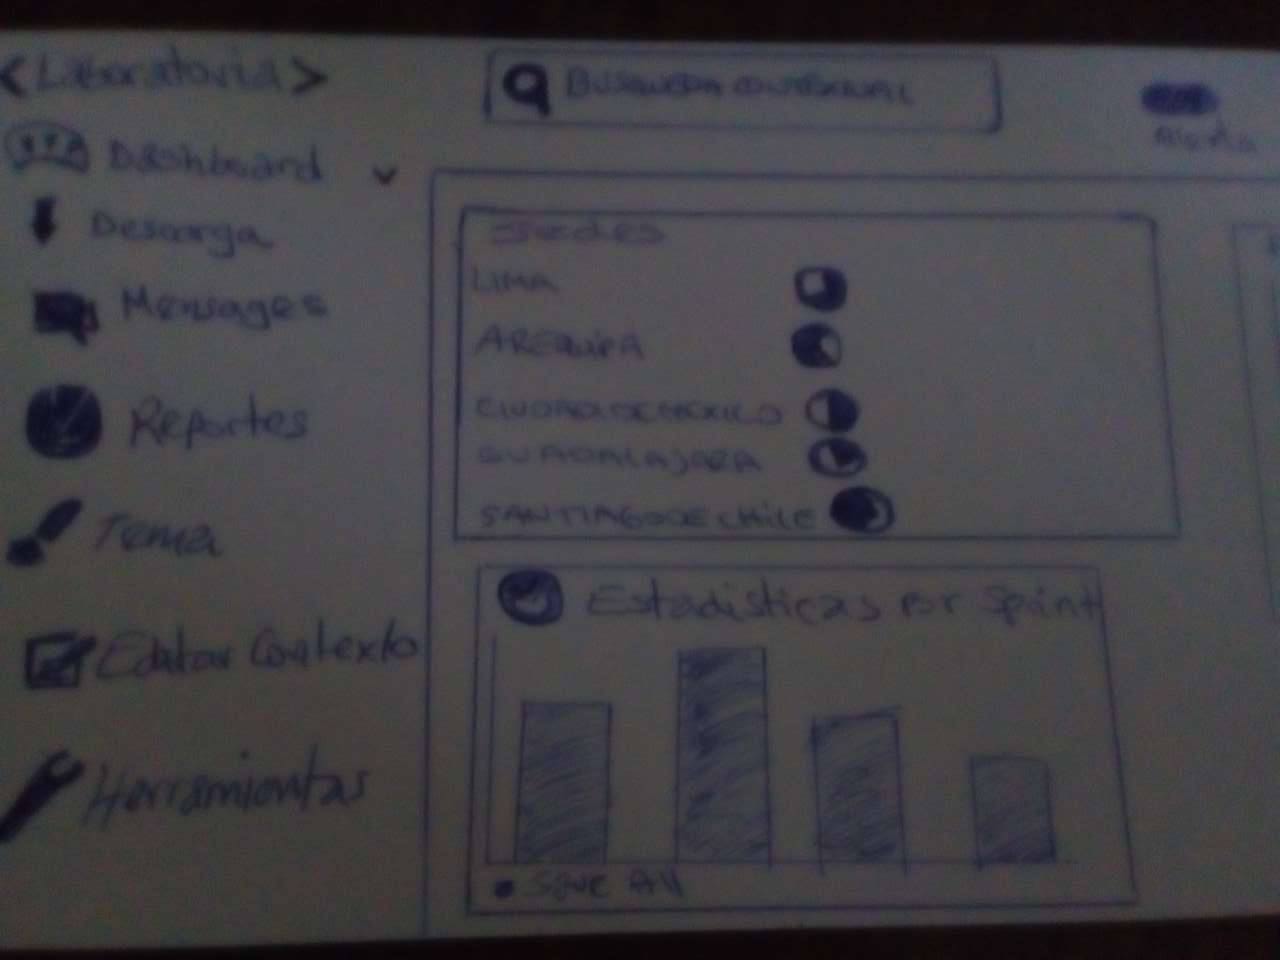 <Laboratoria>
BUSQUEDA CONTEXTUAL
Alerta
Dashboard
Descarga
Mensages
Reportes
Tema
Editar Contexto
Herramientas
sedes
LIMA
AREQUIPA
CIUDAD DE MEXICO
GUADALAJARA
SANTIAGO DE CHILE
Estadisticas por Sprint
Save All